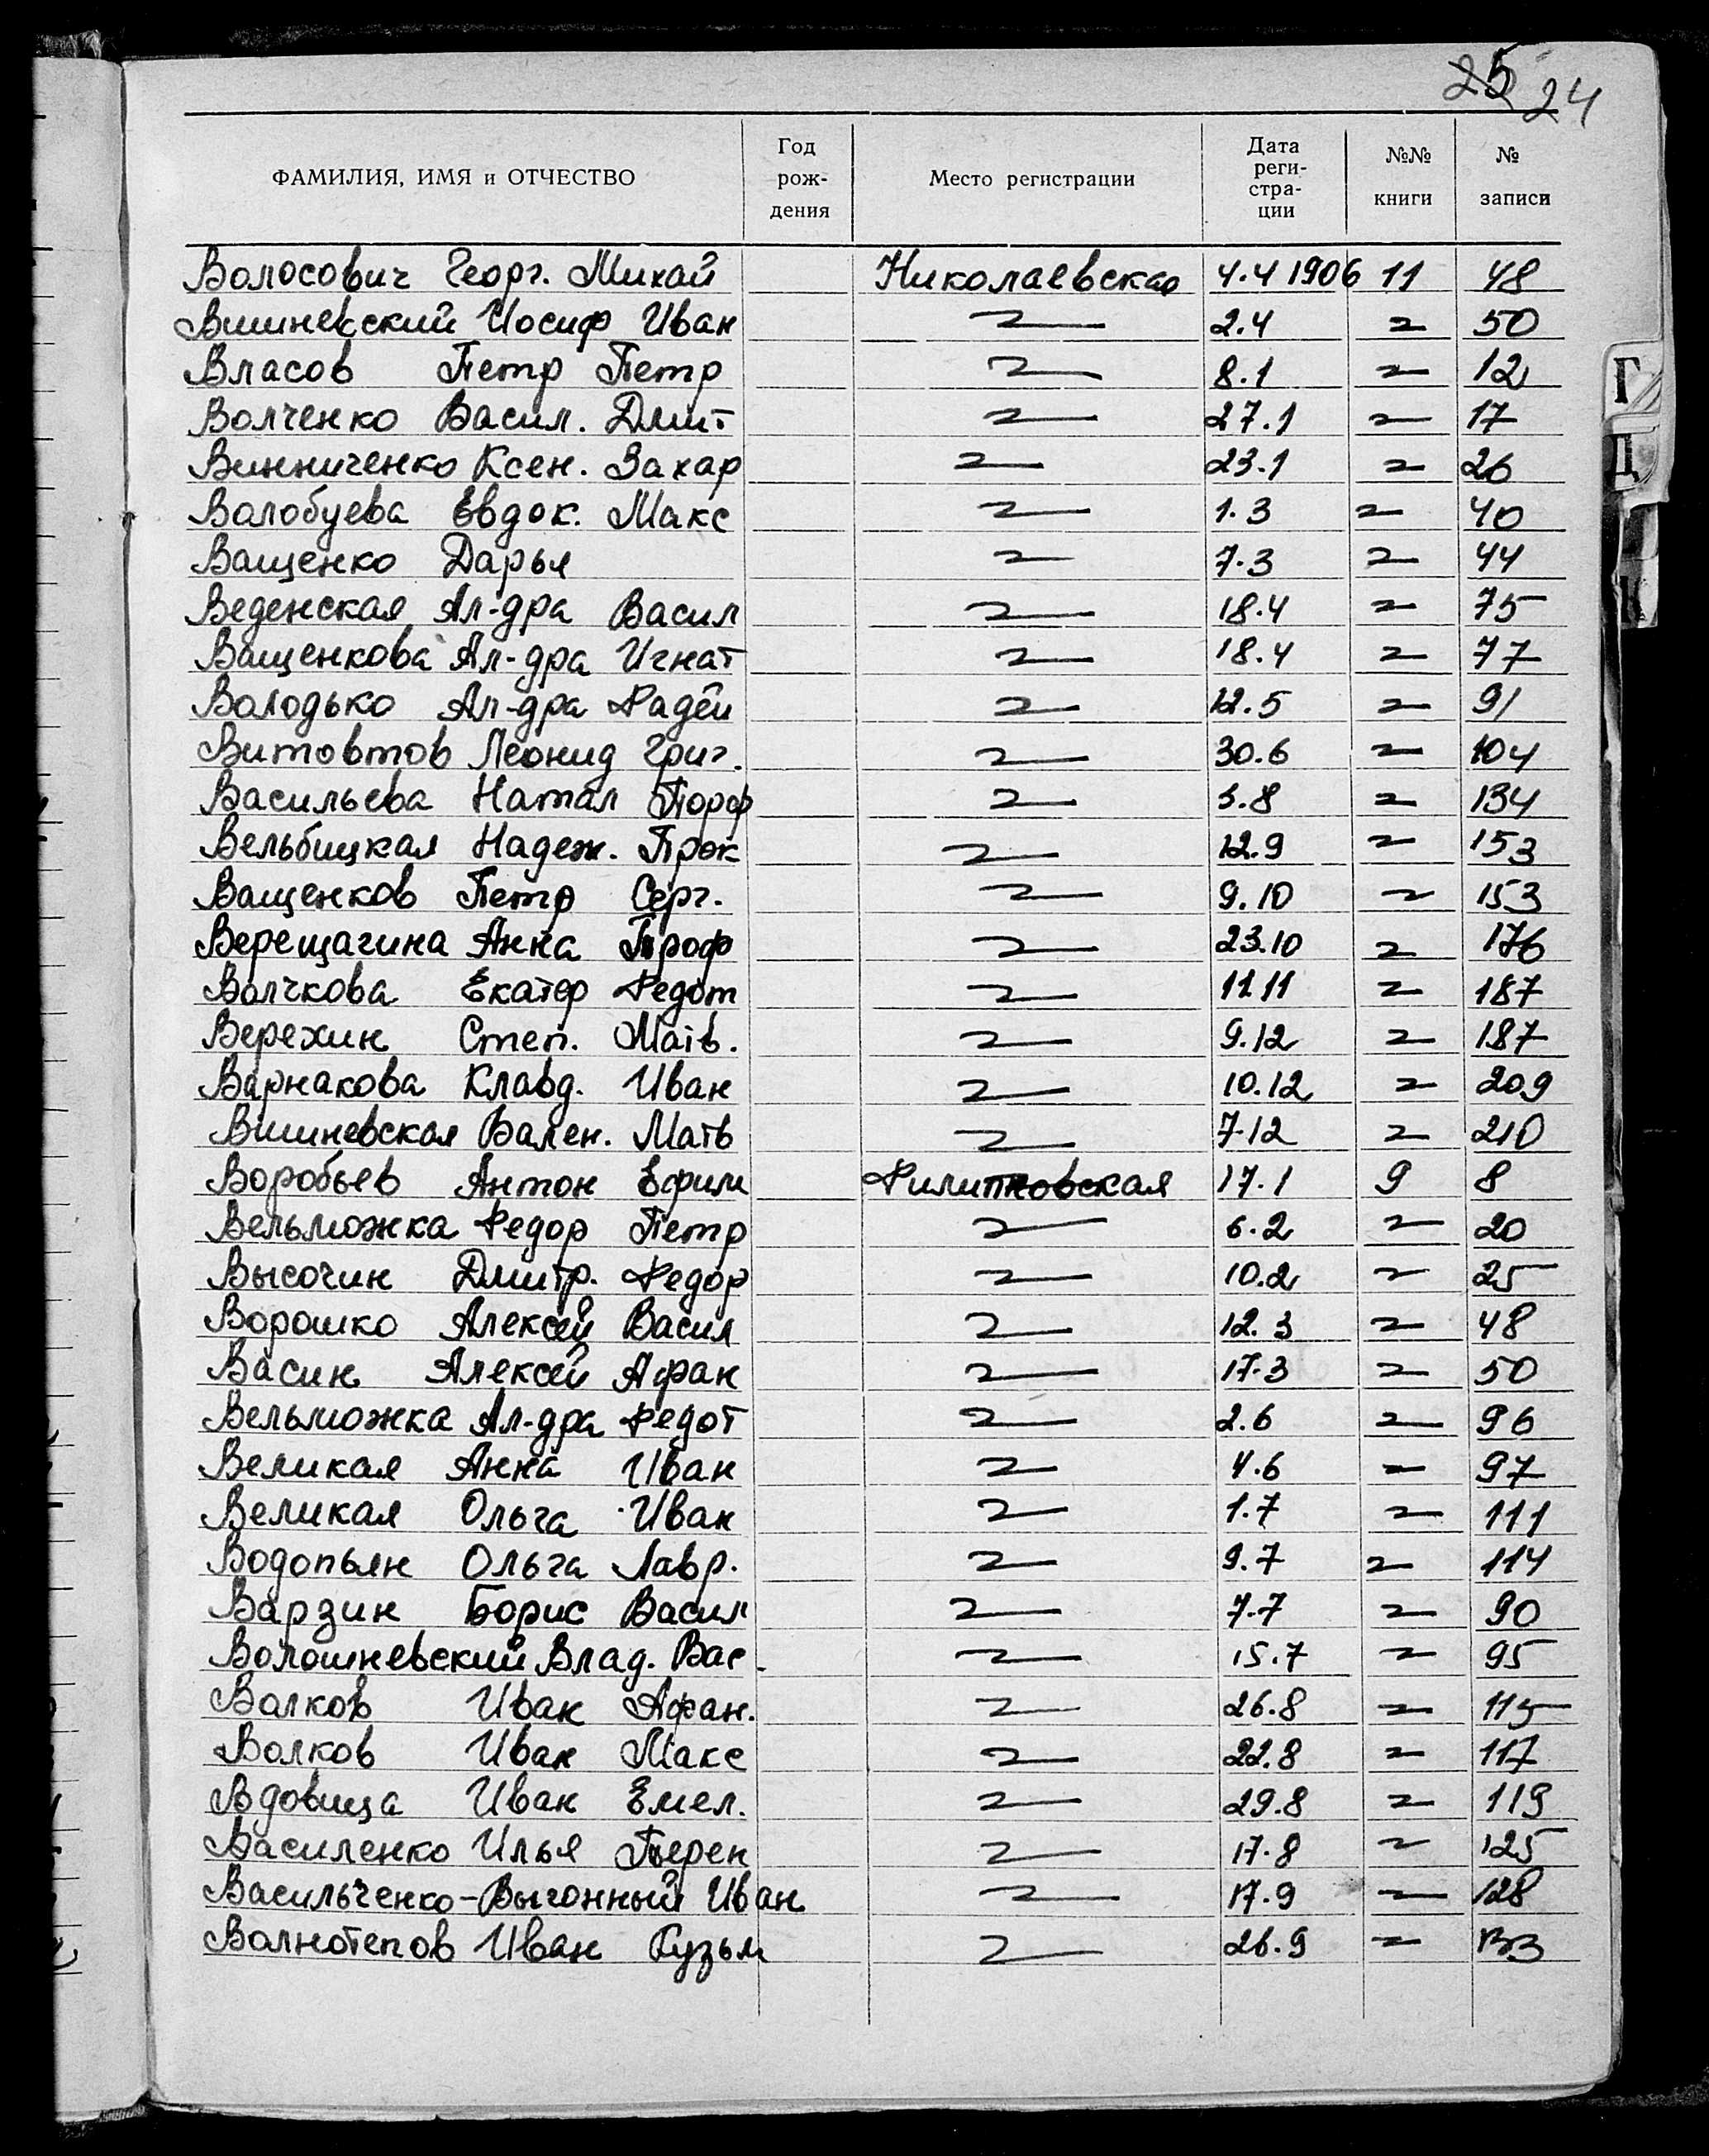 25 24
ФАМИЛИЯ, ИМЯ и ОТЧЕСТВО Год рождения Место регистрации Дата регистрации №№ книги № записи
Волосович Георг. Михай Николаевская 4.4 1906 11 48
Вишневский Иосиф Иван 〃 2.4 〃 50
Власов Петр Петр 〃 8.1 〃 12
Волченко Васил. Дмит 〃 27.1 〃 17
Винниченко Ксен. Захар 〃 23.1 〃 26
Волобуева Евдок. Макс 〃 1.3 〃 40
Ващенко Дарья 〃 7.3 〃 44
Веденская Ал-дра Васил 〃 18.4 〃 75
Ващенкова Ал-дра Игнат 〃 18.4 〃 77
Володько Ал-дра Фадеи 〃 12.5 〃 91
Витовтов Леонид Григ. 〃 30.6 〃 104
Васильева Натал Порф 〃 5.8 〃 134
Вельбицкая Надеж. Прок 〃 12.9 〃 153
Ващенков Петр Серг. 〃 9.10 〃 153
Верещагина Анна Троф 〃 23.10 〃 176
Волчкова Екатер Федот 〃 11.11 〃 187
Верехин Степ. Матв. 〃 9.12 〃 187
Варнакова Клавд. Иван 〃 10.12 〃 209
Вишневская Вален. Матв 〃 7.12 〃 210
Воробьев Антон Ефим Филипповская 17.1 9 8
Вельможка Федор Петр 〃 6.2 〃 20
Высочин Дмитр. Федор 〃 10.2 〃 25
Ворошко Алексей Васил 〃 12.3 〃 48
Васин Алексей Афан 〃 17.3 〃 50
Вельможка Ал-дра Федот 〃 2.6 〃 96
Великая Анна Иван 〃 4.6 〃 97
Великая Ольга Иван 〃 1.7 〃 111
Водопьян Ольга Лавр. 〃 9.7 〃 114
Варзин Борис Васил 〃 7.7 〃 90
Волошневский Влад. Вас. 〃 15.7 〃 95
Волков Иван Афан. 〃 26.8 〃 115
Волков Иван Макс 〃 22.8 〃 117
Вдовица Иван Емел. 〃 29.8 〃 119
Василенко Илья Терен 〃 17.8 〃 125
Васильченко-Выгонный Иван 〃 17.9 〃 128
Волнотепов Иван Кузьм 〃 26.9 〃 133
Г
Д